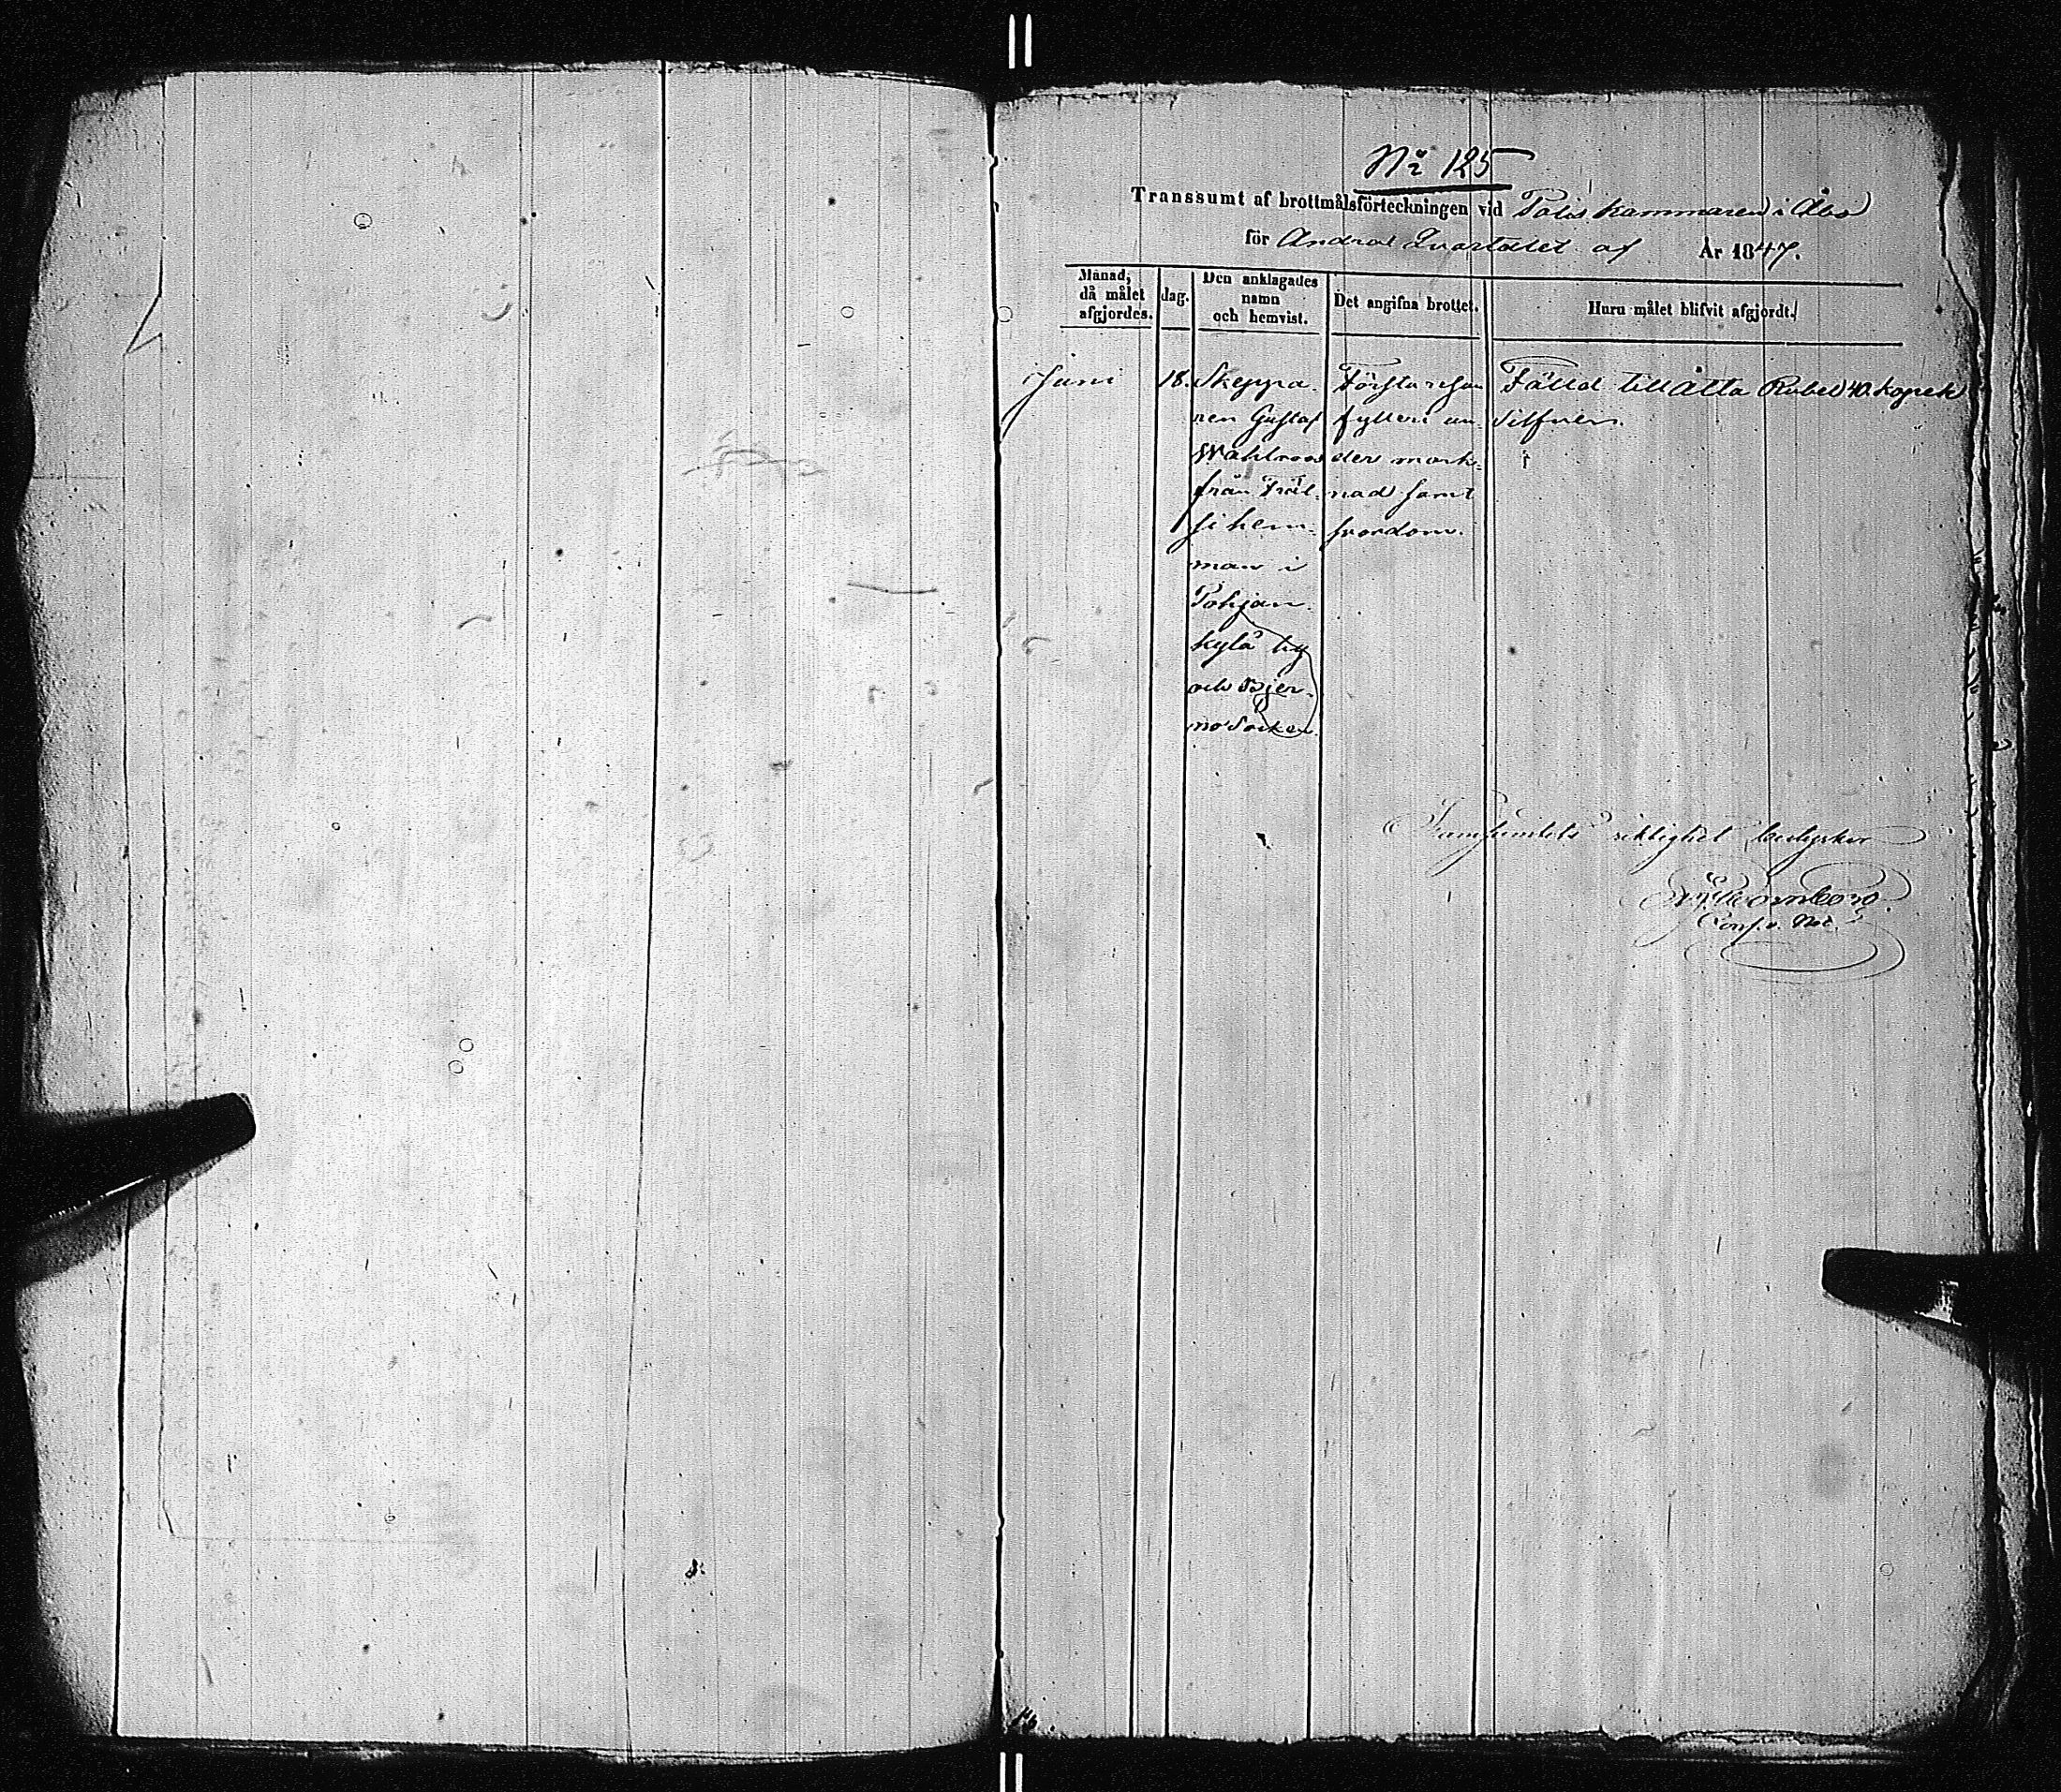 No 125
Transsumt af brottmålsförteckningen vid Polis kammaren i Åbo
för Andra Quartalet af År 1847.
Månad,
då målet
afgjordes.
dag.
Den anklagades
namn
och hemvist.
Det angifna brottet.
Huru målet blifvit afgjordt.
Juni
18.
Skeppa-
ren Gustaf
Wahlroos
från
si hem-
man i
Pohjan-
kylä by
och Bjer-
no Socken.
Första resan
fylleri un-
der mark-
nad samt
svordom.
Fälld till åtta Rubel 40. kopek
Silfver.
Transsumtets riktighet bestyrker